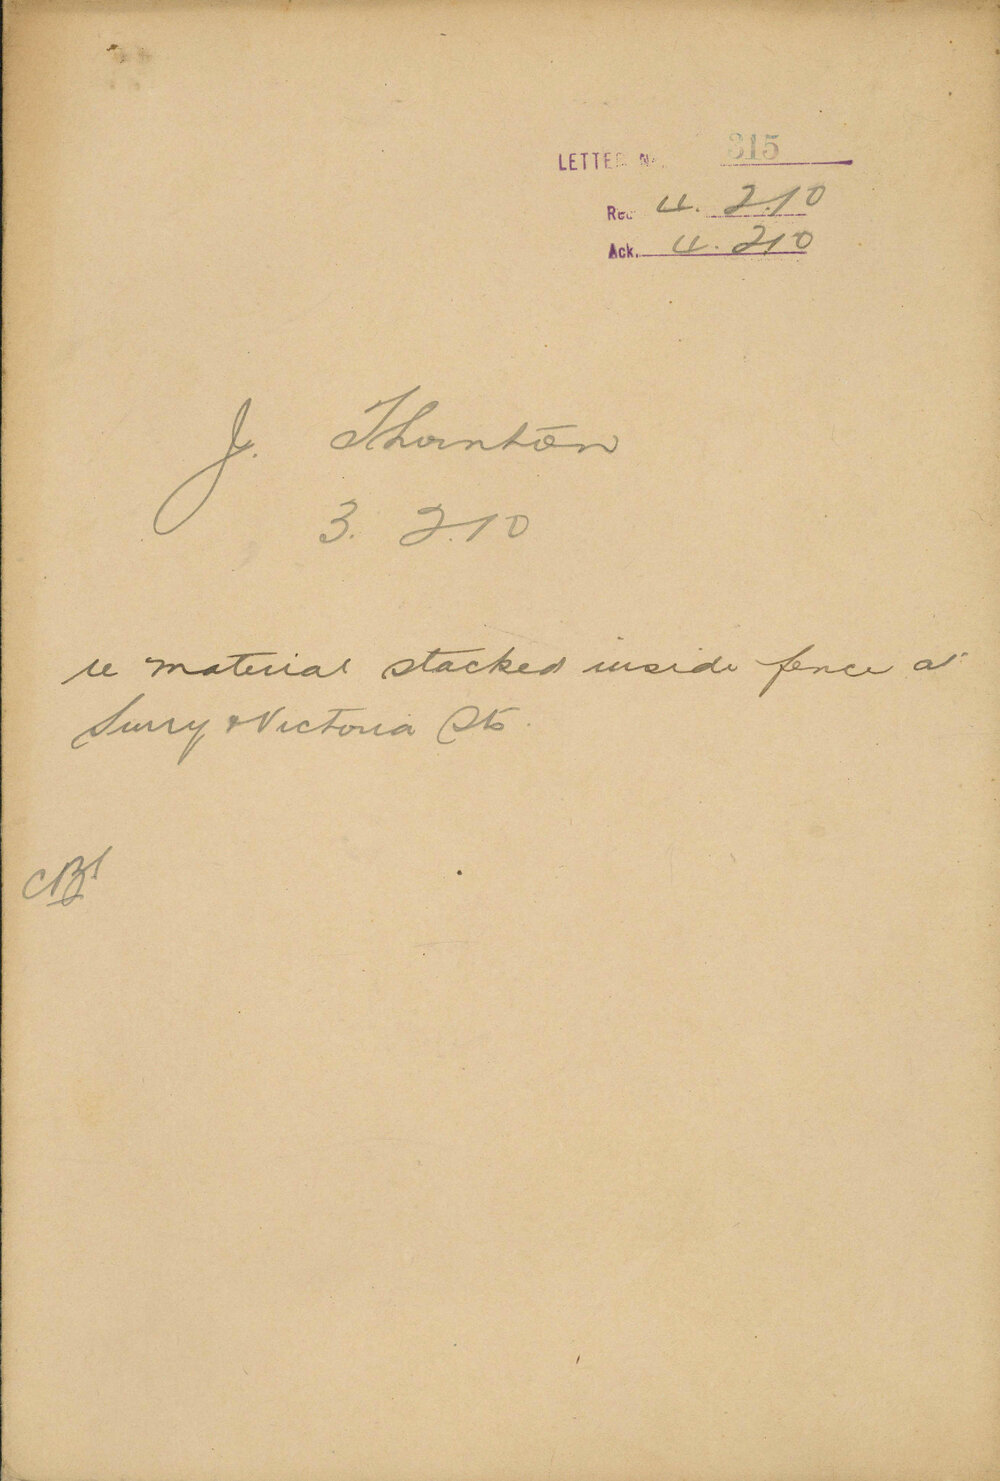 LETTER No. 315
Rec 4. 2.10
Ack. 4. 2.10
J. Thornton
3. 2.10
re material stacked inside fence at
Surry & Victoria Sts.